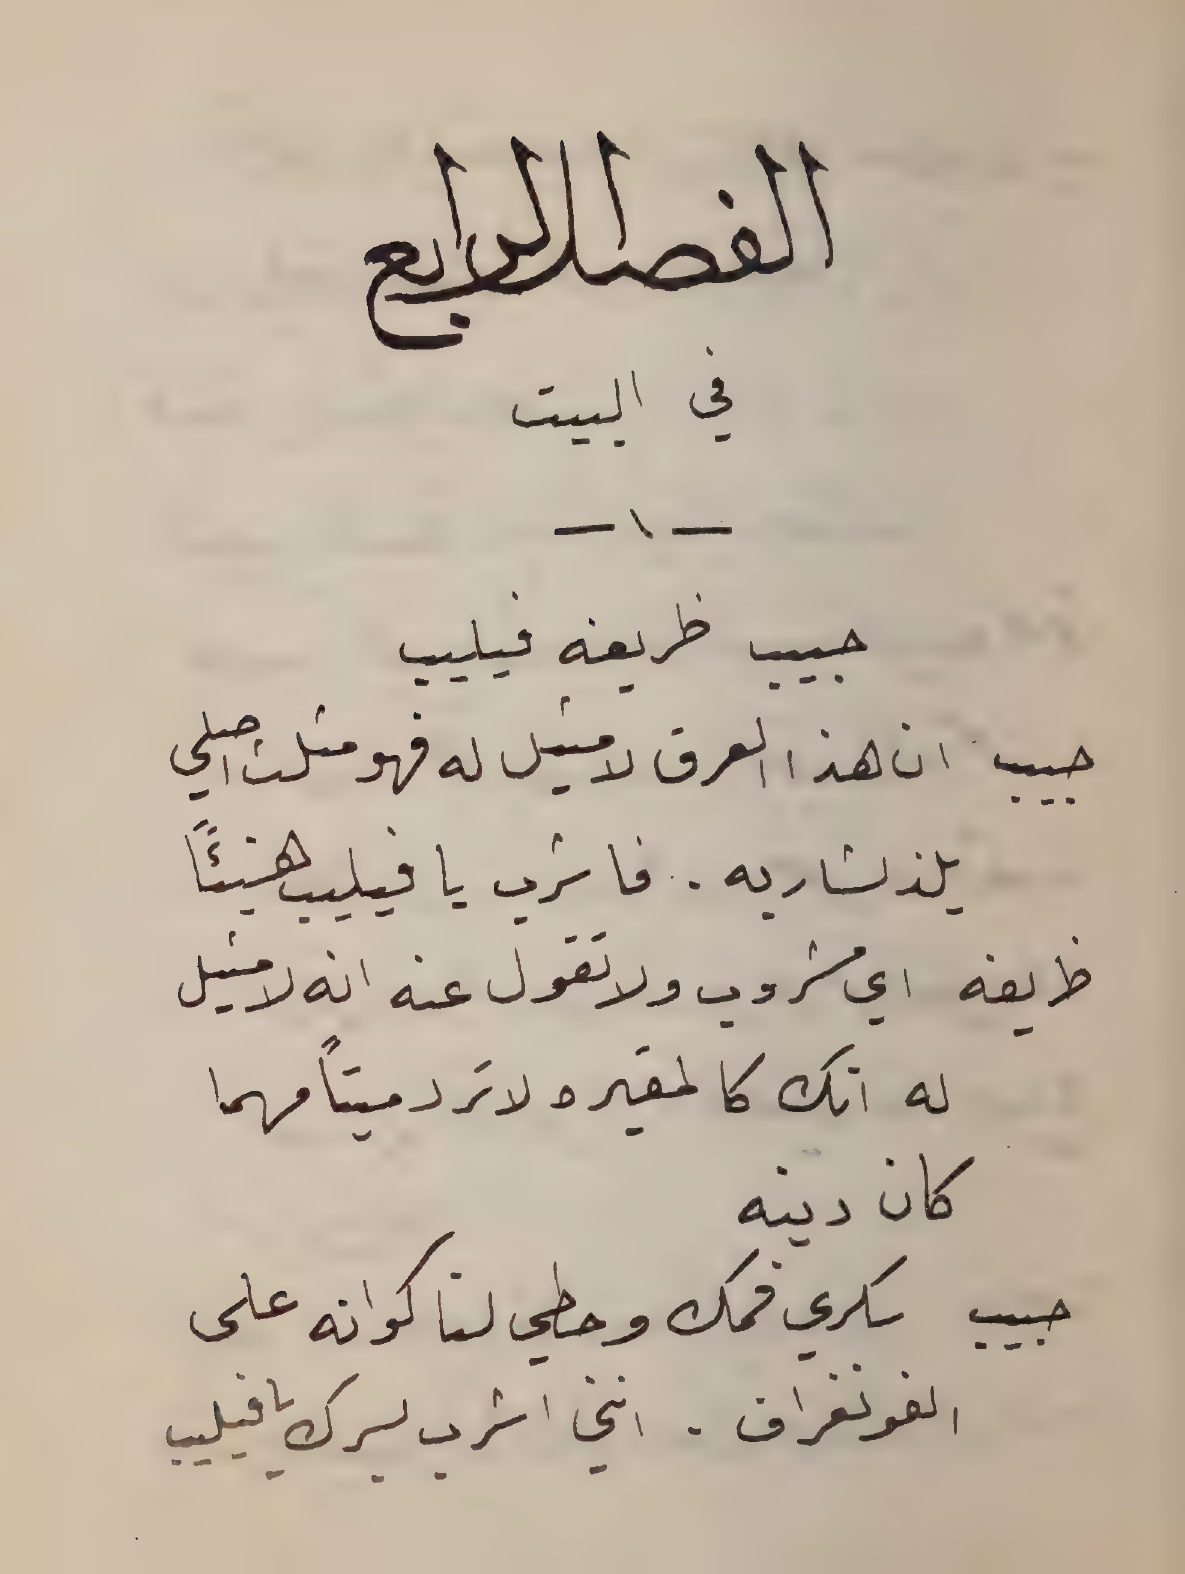 الفصل الرابع
في البيت
— ١ —
حبيب ظريفه فيليب
حبيب ان هذا العرق لا مثيل له فهو مثلث اصلي
يلذ لشاربه . فاشرب يا فيليب هنيئًا
ظريفه اي مشروب ولا تقول عنه انه لا مثيل
له انك كالمقبره لا ترد ميتاً مهما
كان دينه
حبيب سكري فمك وحطي لنا كوانه على
الفونغراف . انني اشرب بسرك يا فيليب